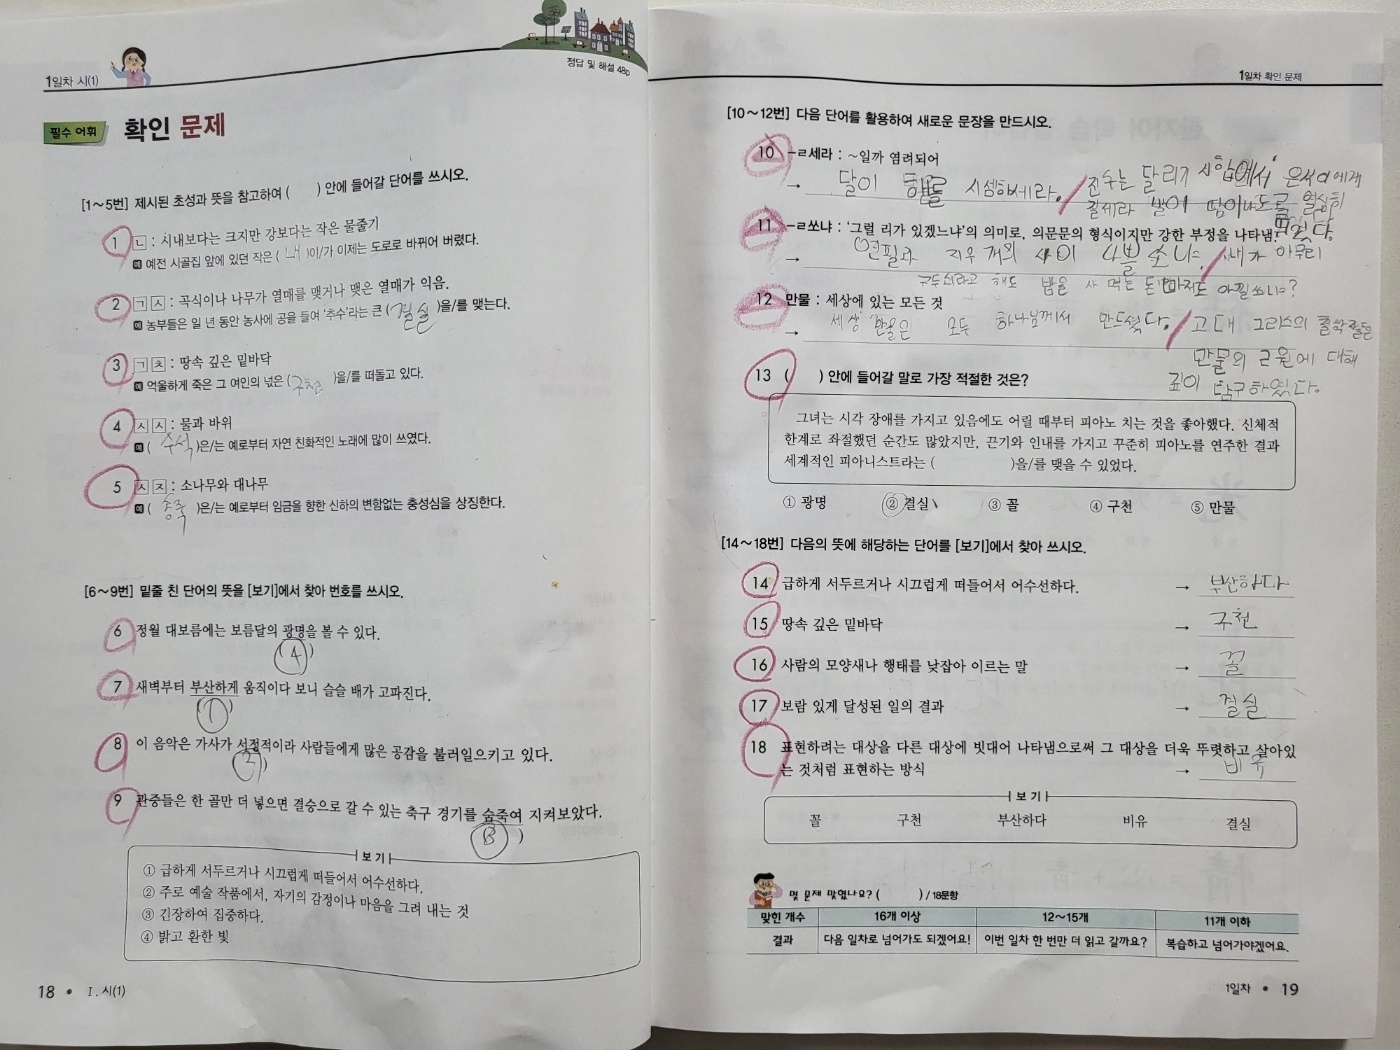 1일차 시(1)
정답 및 해설 48p
필수 어휘 확인 문제
[1~5번] 제시된 초성과 뜻을 참고하여 ( ) 안에 들어갈 단어를 쓰시오.
1 ㄴ : 시내보다는 크지만 강보다는 작은 물줄기
예 예전 시골집 앞에 있던 작은 ( 내 )이/가 이제는 도로로 바뀌어 버렸다.
2 ㄱㅅ : 곡식이나 나무가 열매를 맺거나 맺은 열매가 익음.
예 농부들은 일 년 동안 농사에 공을 들여 '추수'라는 큰 ( 결실 )을/를 맺는다.
3 ㄱㅊ : 땅속 깊은 밑바닥
예 억울하게 죽은 그 여인의 넋은 ( 구천 )을/를 떠돌고 있다.
4 ㅅㅅ : 물과 바위
예 ( 수석 )은/는 예로부터 자연 친화적인 노래에 많이 쓰였다.
5 ㅅㅈ : 소나무와 대나무
예 ( 송죽 )은/는 예로부터 임금을 향한 신하의 변함없는 충성심을 상징한다.
[6~9번] 밑줄 친 단어의 뜻을 [보기]에서 찾아 번호를 쓰시오.
6 정월 대보름에는 보름달의 광명을 볼 수 있다.
( 4 )
7 새벽부터 부산하게 움직이다 보니 슬슬 배가 고파진다.
( 1 )
8 이 음악은 가사가 서정적이라 사람들에게 많은 공감을 불러일으키고 있다.
( 2 )
9 관중들은 한 골만 더 넣으면 결승으로 갈 수 있는 축구 경기를 숨죽여 지켜보았다.
( 3 )
보기
① 급하게 서두르거나 시끄럽게 떠들어서 어수선하다.
② 주로 예술 작품에서, 자기의 감정이나 마음을 그려 내는 것
③ 긴장하여 집중하다.
④ 밝고 환한 빛
18 • Ⅰ. 시(1)
1일차 확인 문제
[10~12번] 다음 단어를 활용하여 새로운 문장을 만드시오.
10 -ㄹ세라 : ~일까 염려되어
→ 달이 해를 시샘하세라. / 진수는 달리기 시합에서 은서에게
질세라 발이 땀이나도록 열심히
뛰었다.
11 -ㄹ쏘냐 : '그럴 리가 있겠느냐'의 의미로, 의문문의 형식이지만 강한 부정을 나타냄.
→ 연필과 지우개의 사이 나쁠쏘냐. / 내가 아무리
구두쇠라고 해도 밥을 사 먹는 돈마저도 아낄쏘냐?
12 만물 : 세상에 있는 모든 것
→ 세상 만물은 모두 하나님께서 만드셨다. / 고대 그리스의 철학자들은
만물의 근원에 대해
깊이 탐구하였다.
13 ( ) 안에 들어갈 말로 가장 적절한 것은?
그녀는 시각 장애를 가지고 있음에도 어릴 때부터 피아노 치는 것을 좋아했다. 신체적
한계로 좌절했던 순간도 많았지만, 끈기와 인내를 가지고 꾸준히 피아노를 연주한 결과
세계적인 피아니스트라는 ( )을/를 맺을 수 있었다.
① 광명 ② 결실 ③ 꼴 ④ 구천 ⑤ 만물
[14~18번] 다음의 뜻에 해당하는 단어를 [보기]에서 찾아 쓰시오.
14 급하게 서두르거나 시끄럽게 떠들어서 어수선하다. → 부산하다
15 땅속 깊은 밑바닥 → 구천
16 사람의 모양새나 행태를 낮잡아 이르는 말 → 꼴
17 보람 있게 달성된 일의 결과 → 결실
18 표현하려는 대상을 다른 대상에 빗대어 나타냄으로써 그 대상을 더욱 뚜렷하고 살아있
는 것처럼 표현하는 방식 → 비유
보기
꼴 구천 부산하다 비유 결실
몇 문제 맞혔나요? ( ) / 18문항
맞힌 개수 16개 이상 12~15개 11개 이하
결과 다음 일차로 넘어가도 되겠어요! 이번 일차 한 번만 더 읽고 갈까요? 복습하고 넘어가야겠어요.
1일차 • 19